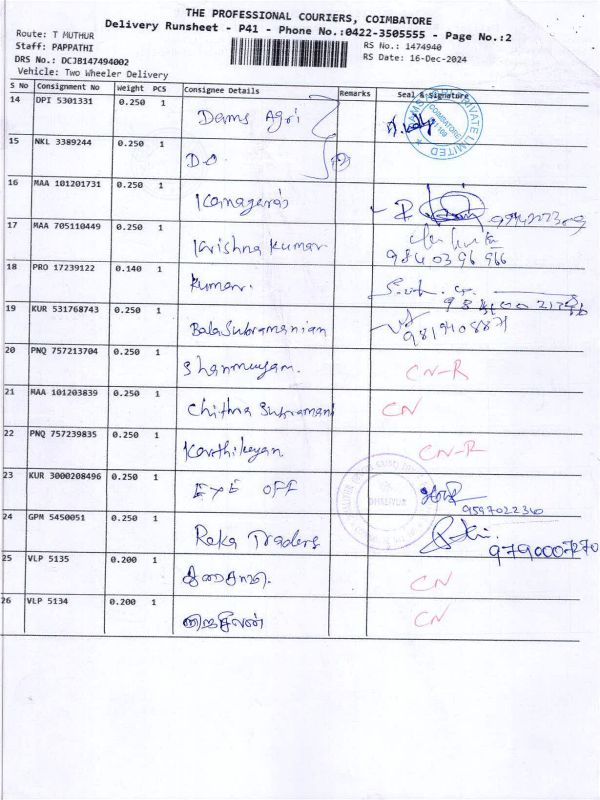 THE PROFESSIONAL COURIERS, COIMBATORE
Delivery Runsheet - P41 - Phone No.:0422-3505555 - Page No.:2
Route: T MUTHUR
RS No.: 1474940
Staff: PAPPATHI
RS Date: 16-Dec-2024
DRS No.: DCJB147494002
Vehicle: Two Wheeler Delivery
S No Consignment No Weight PCS Consignee Details Remarks Seal & Signature
14 DPI 5301331 0.250 1 Dams Agri
15 NKL 3389244 0.250 1 DO. (2)
16 MAA 101201731 0.250 1 Kanagaraj
17 MAA 705110449 0.250 1 Krishna Kumar
9840396966
18 PRO 17239122 0.140 1 Kumar.
19 KUR 531768743 0.250 1 BalaSubramanian
20 PNQ 757213704 0.250 1 Shanmugam. CN-R
21 MAA 101203839 0.250 1 Chithra Subramani CN
22 PNQ 757239835 0.250 1 Karthikeyan CN-R
23 KUR 3000208496 0.250 1 EXE OFF
9597022340
24 GPM 5450051 0.250 1 Raka Traders
9790007270
25 VLP 5135 0.200 1 CN
26 VLP 5134 0.200 1 CN